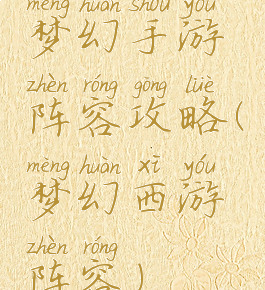 mèng huàn shǒu yóu
梦幻手游
zhèn róng gōng lüè
阵容攻略(
mèng huàn xī yóu
梦幻西游
zhèn róng
阵容)